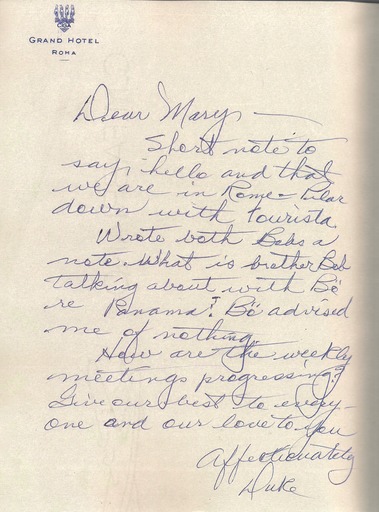 GRAND HOTEL
ROMA
Dear Mary -
Short note to
say, hello and that
we are in Rome - Pilar
down with tourista.
Wrote both Bobs a
note. What is brother Bob
talking about with Bö
re Panama? Bö advised
me of nothing.
How are the weekly
meetings progressing?
Give our best to every-
one and our love to you
Affectionately
Duke